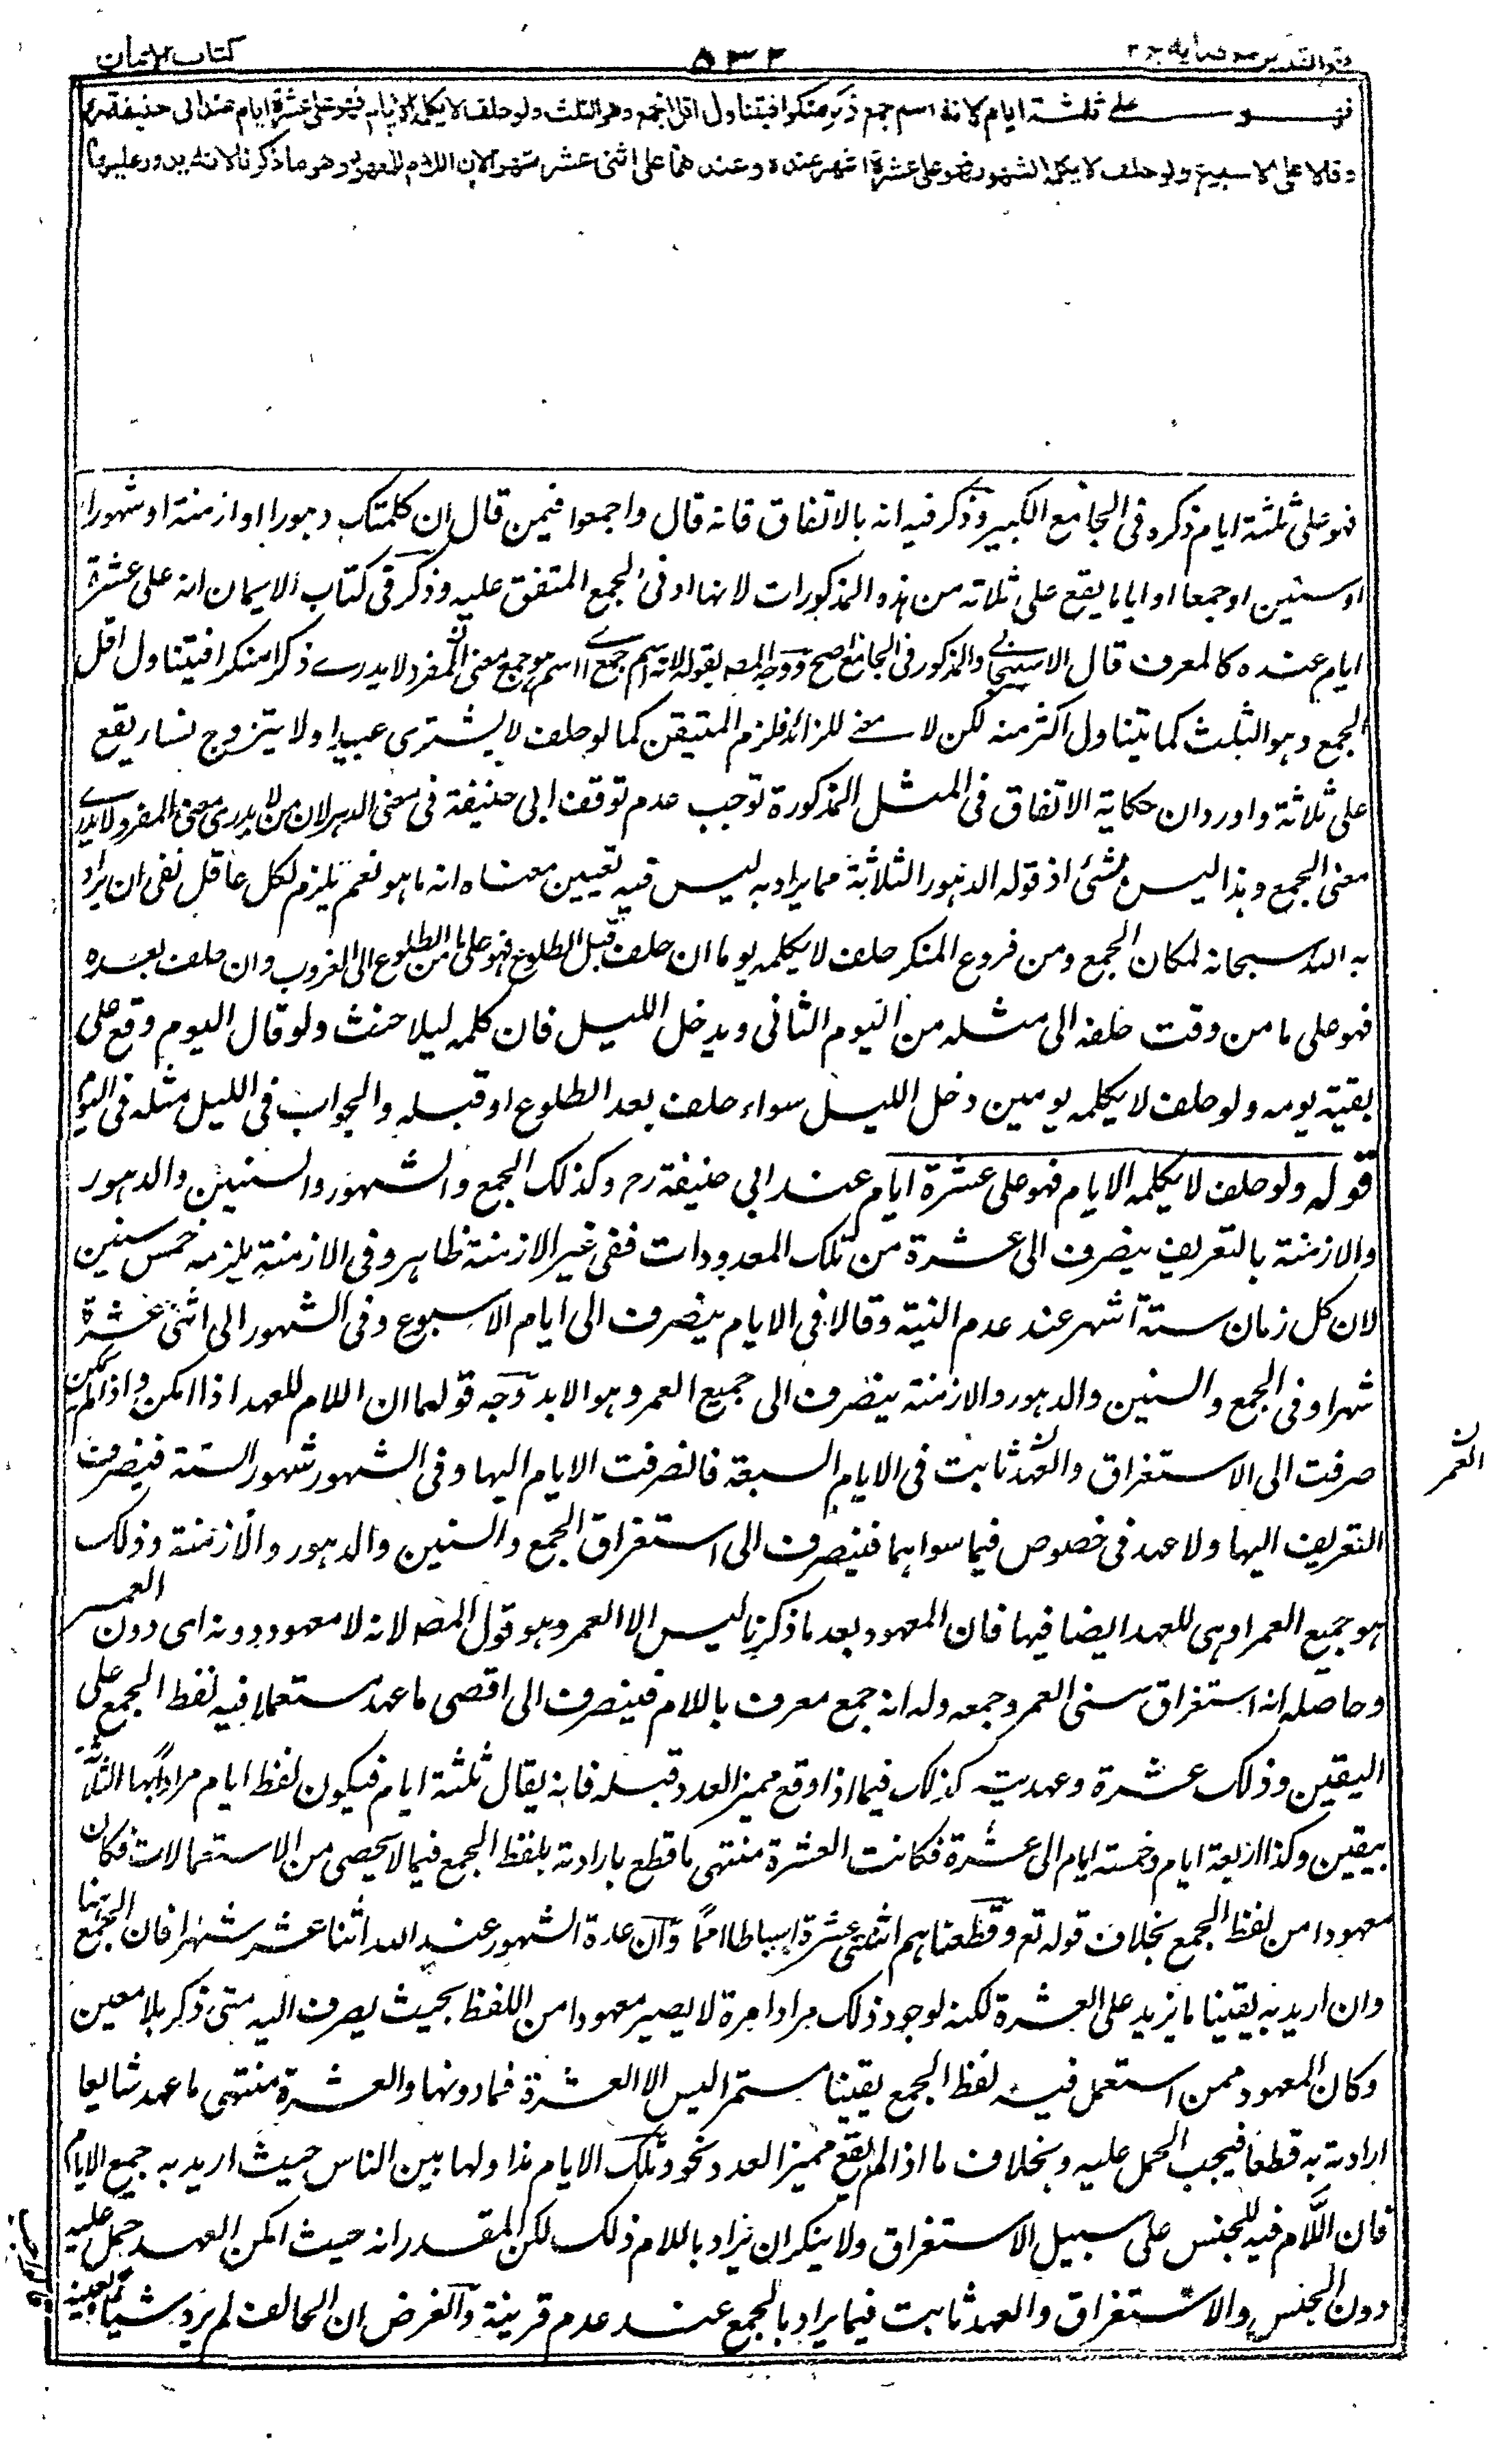 فتح القدير مع هدايه ج ٢
٥٣٢
كتاب الايمان
فهو على ثلثة ايام لانه اسم جمع ذكر منكرا فيتناول اقل الجمع وهو الثلث ولو حلف لا يكلمه الايام فهو على عشرة ايام عند ابى حنيفة رح
وقالا على ايام الاسبوع ولو حلف لا يكلمه الشهور فهو على عشرة اشهر عنده وعندهما على اثنى عشر شهرا لان اللام للمعهود وهو ما ذكرنا لانه يدور عليها
فهو على ثلثة ايام ذكره فى الجامع الكبير وذكر فيه انه بالاتفاق فانه قال واجمعوا فيمن قال ان كلمتك دهورا او ازمنة او شهورا
او سنين او جمعا او اياما يقع على ثلاثة من هذه المذكورات لانها ادنى الجمع المتفق عليه وذكر فى كتاب الايمان انه على عشرة
ايام عنده كالمعرف قال الاسبيجابى والمذكور فى الجامع اصح ووجه المصـ بقوله لانه اسم جمع اى اسم هو جمع معنى لان المفرد لا يدرى ذكر منكرا فيتناول اقل
الجمع وهو الثلث كما يتناول اكثر منه لكن لا معين للزائد فلزم المتيقن كما لو حلف لا يشترى عبيدا ولا يتزوج نساء يقع
على ثلاثة واورد ان حكاية الاتفاق فى المسئل المذكورة توجب عدم توقف ابى حنيفة فى معنى الدهر لان من لا يدرى معنى المفرد لا يدرى
معنى الجمع وهذا ليس بشئ اذ قوله الدهور الثلاثة مما يراد به ليس فيه تعيين معناه انه ما هو نعم يلزم لكل عاقل نفى ان يراد
به الله سبحانه لمكان الجمع ومن فروع المنكر حلف لا يكلمه يوما ان حلف قبل الطلوع فهو على ما من الطلوع الى الغروب وان حلف بعده
فهو على ما من وقت حلفه الى مثله من اليوم الثانى ويدخل الليل فان كلمه ليلا حنث ولو قال اليوم وقع على
بقية يومه ولو حلف لا يكلمه يومين دخل الليل سواء حلف بعد الطلوع او قبله والجواب فى الليل مثله فى اليوم
قوله ولو حلف لا يكلمه الايام فهو على عشرة ايام عند ابى حنيفة رح وكذلك الجمع والشهور والسنين والدهور
والازمنة بالتعريف ينصرف الى عشرة من تلك المعدودات ففى غير الازمنة ظاهر وفى الازمنة يلزمه خمس سنين
لان كل زمان ستة اشهر عند عدم النية وقالا فى الايام ينصرف الى ايام الاسبوع وفى الشهور الى اثنى عشرة
شهرا وفى الجمع والسنين والدهور والازمنة ينصرف الى جميع العمر وهو الابد وجه قولهما ان اللام للعهد اذا امكن واذا لم يمكن
صرف الى الاستغراق والعهد ثابت فى الايام السبعة فانصرفت الايام اليها وفى الشهور شهور السنة فينصرف
التعريف اليها ولا عهد فى خصوص فيما سواهما فينصرف الى استغراق الجمع والسنين والدهور والازمنة وذلك
هو جميع العمر او هى للعهد ايضا فيها فان المعهود بعد ما ذكرنا ليس الا العمر وهو قول المصـ لانه لا معهود دونه اى دون العمر
وحاصله انه استغراق سنى العمر وجمعه وله انه جمع معرف باللام فينصرف الى اقصى ما عهد مستعملا فيه لفظ الجمع على
اليقين وذلك عشرة وعهديته كذلك فيما اذا وقع مميز العدد قبله فانه يقال ثلثة ايام فيكون لفظ ايام مرادا بها الثلثة
بيقين وكذا اربعة ايام وخمسة ايام الى عشرة فكانت العشرة منتهى ما قطع بارادته بلفظ الجمع فيما لا يحصى من الاستعمالات فكان
معهودا من لفظ الجمع بخلاف قوله تع وقطعناهم اثنتى عشرة اسباطا امما وان عدة الشهور عند الله اثنا عشر شهرا فان الجمع هنا
وان اريد به يقينا ما يزيد على العشرة لكنه لوجود ذلك مرادا مرة لا يصير معهودا من اللفظ بحيث يصرف اليه متى ذكر بلا معين
وكان المعهود ممن استعمل فيه لفظ الجمع يقينا مستمرا ليس الا العشرة فما دونها والعشرة منتهى ما عهد شايعا
ارادته به قطعا فيجب الحمل عليه وبخلاف ما اذا لم يقع مميز العدد نحو وتلك الايام نداولها بين الناس حيث اريد به جميع الايام
فان اللام فيه للجنس على سبيل الاستغراق ولا ينكر ان يراد باللام ذلك لكن المقدر انه حيث امكن العهد حمل عليه
دون الجنس والاستغراق والعهد ثابت فيما يراد بالجمع عند عدم قرينة والغرض ان الحالف لم يرد شيئا بعينه
العمر